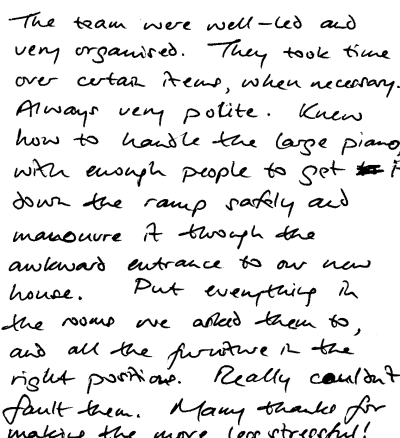 The team were well-led and
very organised. They took time
over certain items, when necessary.
Always very polite. Knew
how to handle the large piano,
with enough people to get it
down the ramp safely and
manouvre it through the
awkward entrance to our new
house. Put everything in
the rooms we asked them to,
and all the furniture in the
right positions. Really couldn't
fault them. Many thanks for
making the move less stressful!